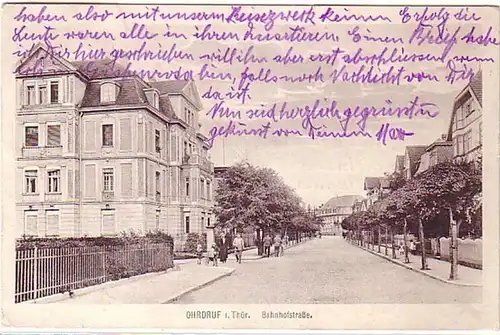 haben also mit unserm Reisezwerk keinen Erfolg die
Leute waren alle in ihren Einen Brief habe
ich Dir hier geschrieben will ihn aber erst abschliessen wenn
haben, falls noch Nachricht von Dir
da ist.
Nun seid herzlich gegrüsst u
geküsst von
OHRDRUF i. Thür. Bahnhofstraße.